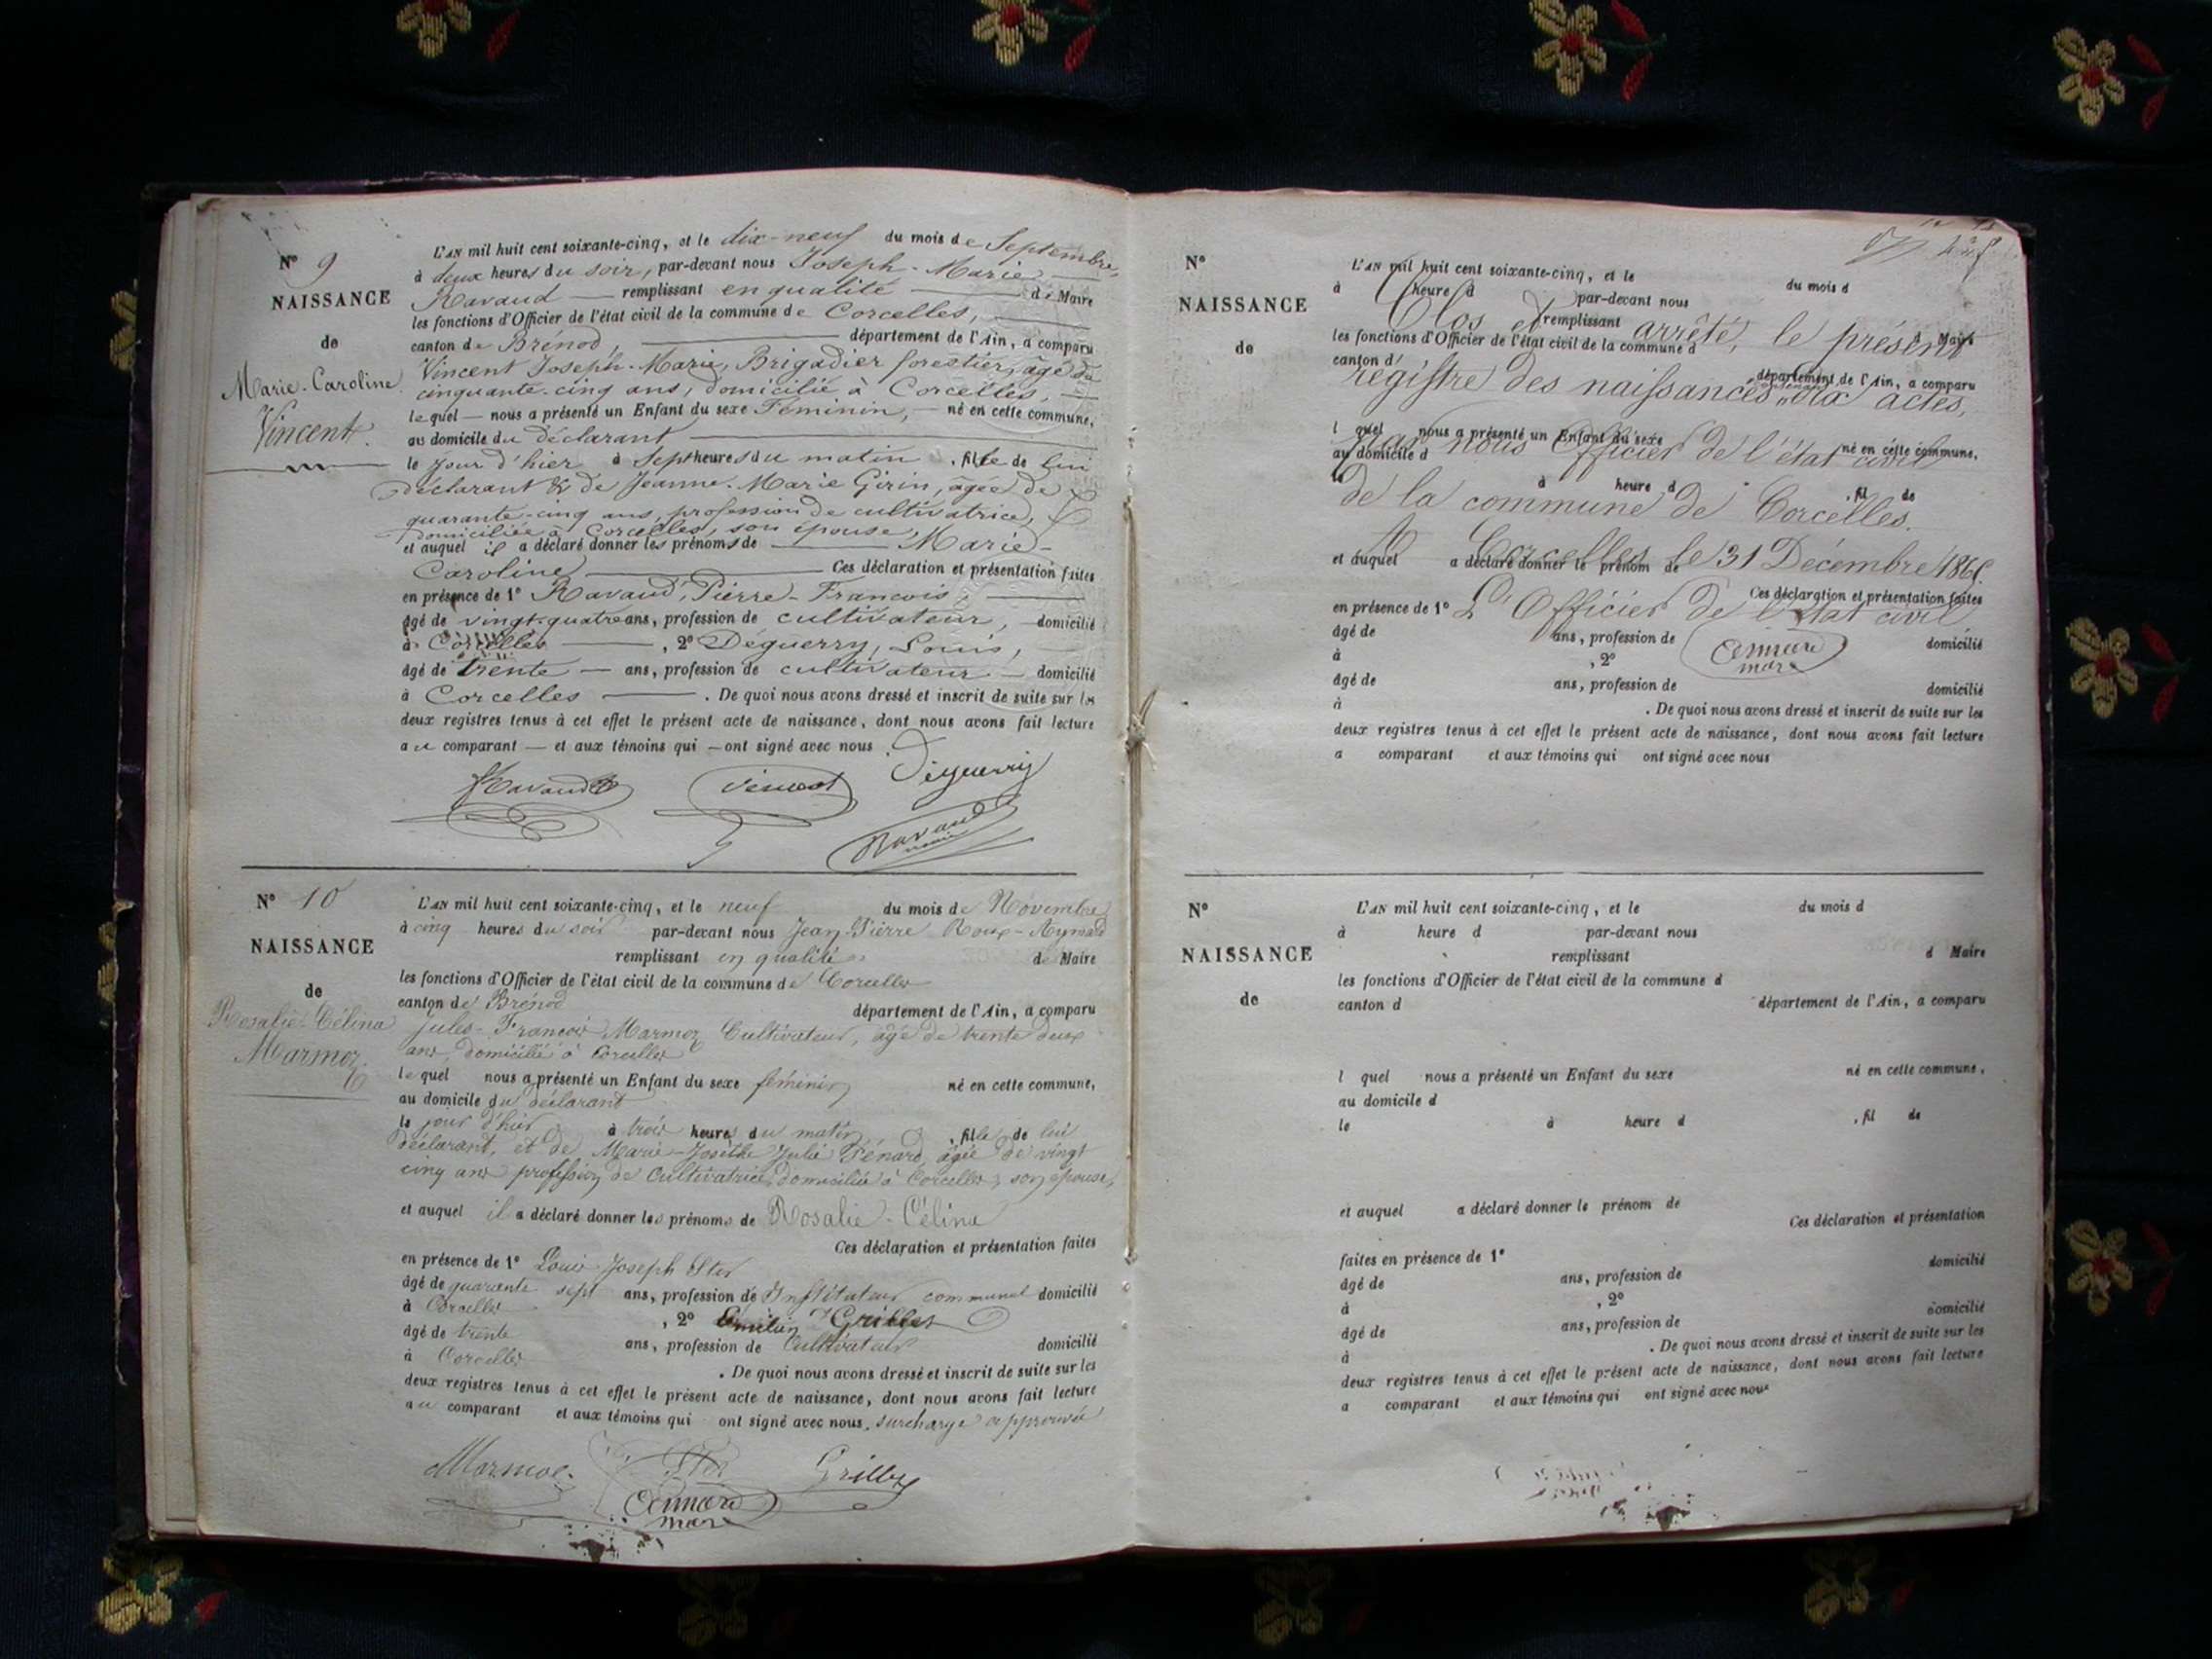 N° 9
NAISSANCE
de
Marie-Caroline
Vincent.
L'AN mil huit cent soixante-cinq, et le dix-neuf du mois de Septembre,
à deux heures du soir, par-devant nous Joseph-Marie
Ravaud — remplissant en qualité — de Maire
les fonctions d'Officier de l'état civil de la commune de Corcelles,
canton de Brénod, — département de l'Ain, a comparu
Vincent Joseph-Marie, Brigadier forestier, âgé de
cinquante-cinq ans, domicilié à Corcelles, —
lequel — nous a présenté un Enfant du sexe Féminin, — né en cette commune,
au domicile du déclarant —
le jour d'hier à sept heures du matin, fille de lui
déclarant & de Jeanne-Marie Girin, âgée de
quarante-cinq ans, profession de cultivatrice,
domiciliée à Corcelles, son épouse,
et auquel il a déclaré donner les prénoms de — Marie-
Caroline — Ces déclaration et présentation faites
en présence de 1° Ravaud, Pierre-François, —
âgé de vingt-quatre ans, profession de cultivateur, — domicilié
à Corcelles — , 2° Déguerry, Louis, —
âgé de trente — ans, profession de cultivateur — domicilié
à Corcelles — . De quoi nous avons dressé et inscrit de suite sur les
deux registres tenus à cet effet le présent acte de naissance, dont nous avons fait lecture
au comparant — et aux témoins qui — ont signé avec nous.
Ravaud Vincent Déguerry
Ravaud
maire
N° 10
NAISSANCE
de
Rosalie-Célina
Marmoz.
L'AN mil huit cent soixante-cinq, et le neuf du mois de Novembre
à cinq heures du soir par-devant nous Jean-Pierre Roux-Aymard
remplissant en qualité de Maire
les fonctions d'Officier de l'état civil de la commune de Corcelles
canton de Brénod département de l'Ain, a comparu
Jules-François Marmoz Cultivateur, âgé de trente deux
ans, domicilié à Corcelles
lequel nous a présenté un Enfant du sexe féminin né en cette commune,
au domicile du déclarant
le jour d'hier à trois heures du matin, fille de lui
déclarant, et de Marie-Josèthe Julie Pénard, âgée de vingt
cinq ans profession de Cultivatrice, domiciliée à Corcelles, son épouse,
et auquel il a déclaré donner les prénoms de Rosalie-Célina
Ces déclaration et présentation faites
en présence de 1° Louis Joseph Ster
âgé de quarante sept ans, profession de Instituteur communal domicilié
à Corcelles , 2° Emilien Grillet
âgé de trente ans, profession de Cultivateur domicilié
à Corcelles . De quoi nous avons dressé et inscrit de suite sur les
deux registres tenus à cet effet le présent acte de naissance, dont nous avons fait lecture
au comparant et aux témoins qui ont signé avec nous. surcharge approuvée
Marmoz Ster Grillet
maire
N°
NAISSANCE
de
L'AN mil huit cent soixante-cinq, et le du mois d
à heure d par-devant nous
remplissant d Maire
Clos et arrêté, le présent
les fonctions d'Officier de l'état civil de la commune d
canton d département de l'Ain, a comparu
registre des naissances, contenant dix actes,
l quel nous a présenté un Enfant du sexe né en cette commune,
par nous Officier de l'état civil
au domicile d
le à heure d , fil de
de la commune de Corcelles.
A Corcelles le 31 Décembre 1865.
et auquel a déclaré donner le prénom de
Ces déclaration et présentation faites
en présence de 1° L'Officier de l'état civil
âgé de ans, profession de domicilié
à , 2°
maire
âgé de ans, profession de domicilié
à . De quoi nous avons dressé et inscrit de suite sur les
deux registres tenus à cet effet le présent acte de naissance, dont nous avons fait lecture
a comparant et aux témoins qui ont signé avec nous
N°
NAISSANCE
de
L'AN mil huit cent soixante-cinq, et le du mois d
à heure d par-devant nous
remplissant d Maire
les fonctions d'Officier de l'état civil de la commune d
canton d département de l'Ain, a comparu
l quel nous a présenté un Enfant du sexe né en cette commune,
au domicile d
le à heure d , fil de
et auquel a déclaré donner le prénom de
Ces déclaration et présentation
faites en présence de 1°
âgé de ans, profession de domicilié
à , 2°
âgé de ans, profession de domicilié
à . De quoi nous avons dressé et inscrit de suite sur les
deux registres tenus à cet effet le présent acte de naissance, dont nous avons fait lecture
a comparant et aux témoins qui ont signé avec nous